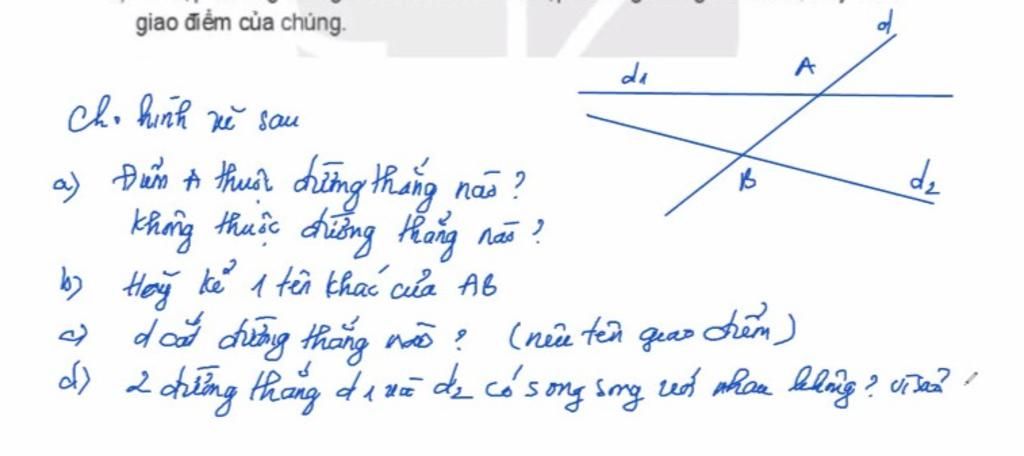 giao điểm của chúng.
d
d1
A
Cho hình vẽ sau
a) Điểm A thuộc đường thẳng nào?
B
d2
Không thuộc đường thẳng nào?
b) Hãy kể 1 tên khác của AB
c) d cắt đường thẳng nào? (nêu tên giao điểm)
d) 2 đường thẳng d1 và d2 có song song với nhau không? vì sao?